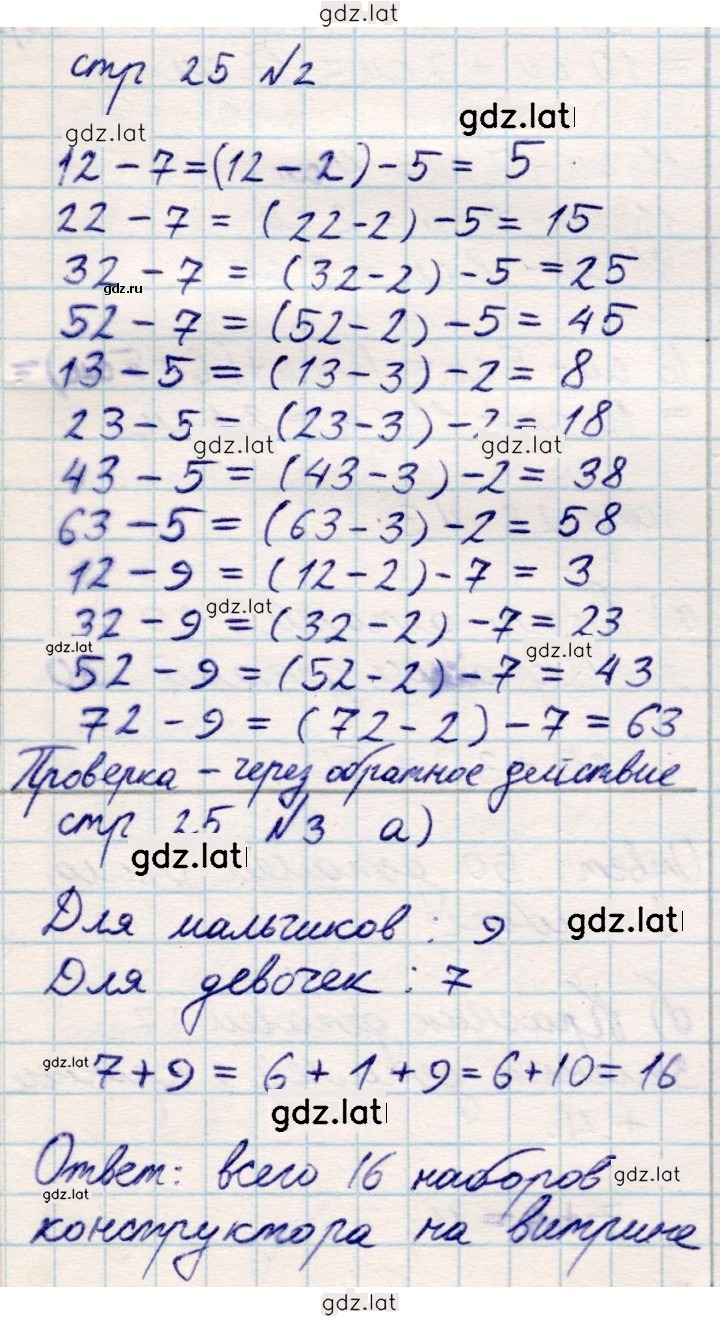 gdz.lat
стр 25 №2
gdz.lat
gdz.lat
12 - 7 = (12 - 2) - 5 = 5
22 - 7 = (22-2) - 5 = 15
32 - 7 = (32-2) - 5 = 25
gdz.ru
52 - 7 = (52-2) - 5 = 45
13 - 5 = (13-3) - 2 = 8
23 - 5 = (23-3) - 2 = 18
gdz.lat
gdz.lat
43 - 5 = (43-3) - 2 = 38
63 - 5 = (63-3) - 2 = 58
12 - 9 = (12-2) - 7 = 3
gdz.lat
32 - 9 = (32-2) - 7 = 23
gdz.lat
gdz.lat
52 - 9 = (52-2) - 7 = 43
72 - 9 = (72-2) - 7 = 63
Проверка - через обратное действие
стр 25 №3 а)
gdz.lat
Для мальчиков : 9
gdz.lat
Для девочек : 7
gdz.lat
7+9 = 6+1+9 = 6+10 = 16
gdz.lat
Ответ: всего 16 наборов
gdz.lat
gdz.lat
конструктора на витрине
gdz.lat